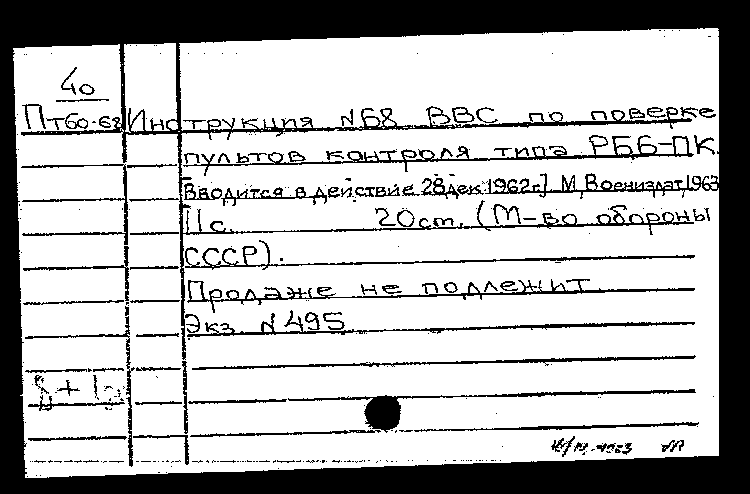 40
Пт60-68 Инструкция №68 ВВС по поверке
пультов контроля типа РБ6-ПК.
Вводится в действие 28 дек 1962г.] М, Воениздат, 1963
11с. 20cm. (М-во обороны
СССР).
Продаже не подлежит
Экз. №495